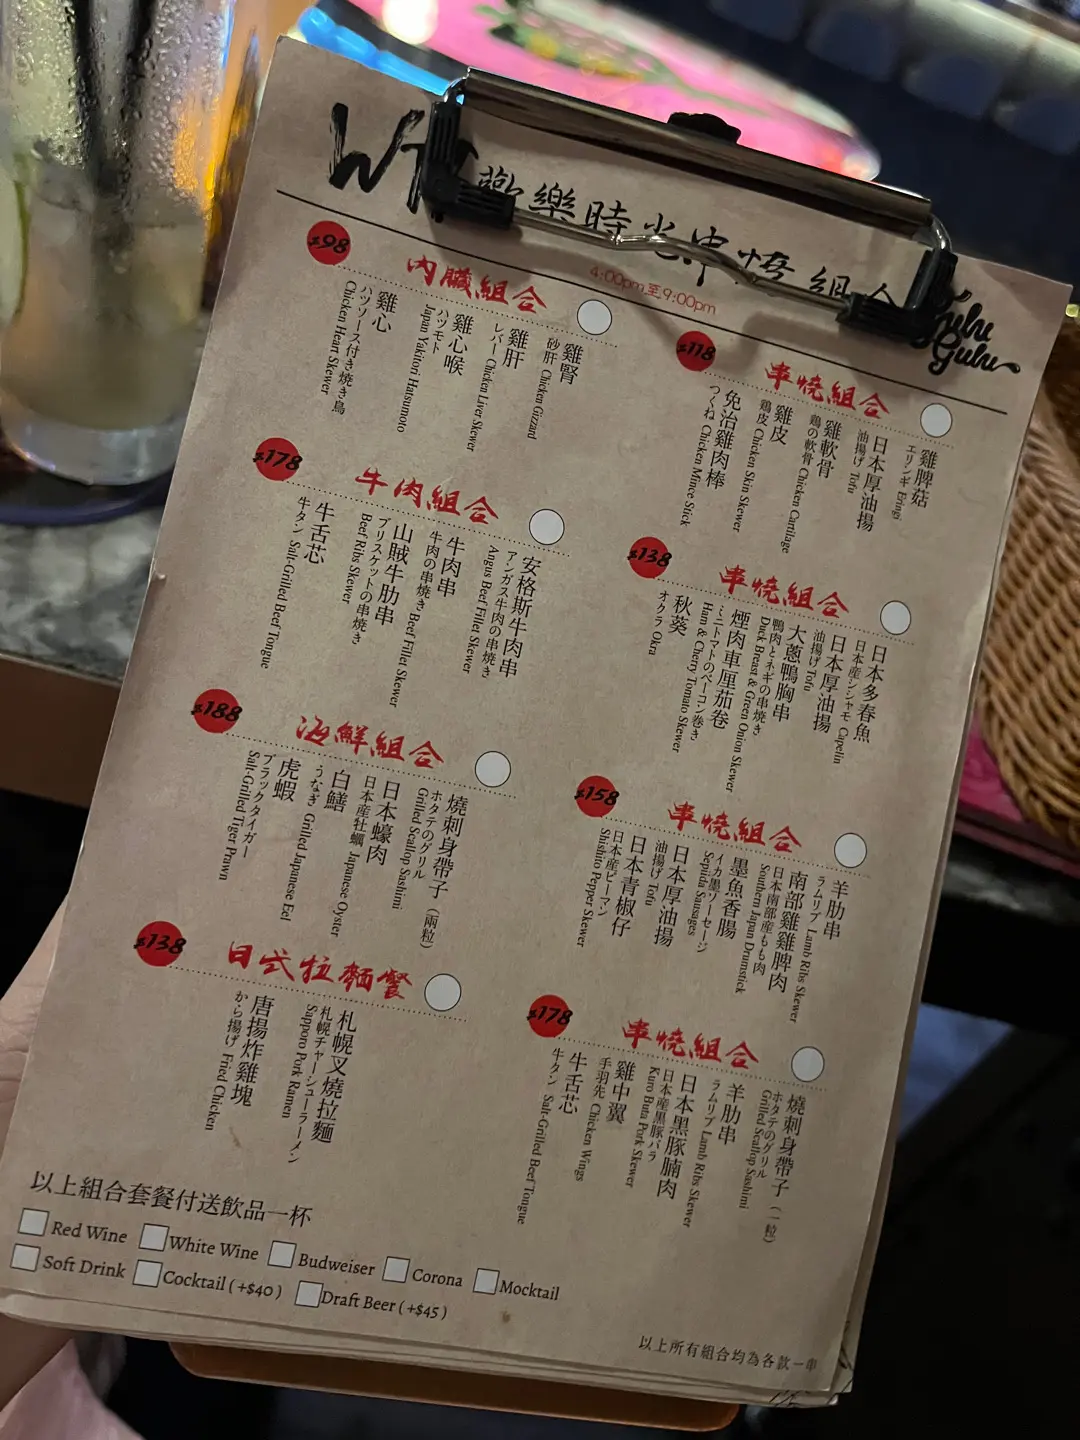 歡樂時光串燒組合
4:00pm至9:00pm
Gulu
Gulu
$98
內臟組合
雞腎
砂肝 Chicken Gizzard
雞肝
レバー Chicken Liver Skewer
雞心喉
ハツモト
Japan Yakitori Hatsumoto
雞心
ハツソース付き焼き鳥
Chicken Heart Skewer
$178
牛肉組合
安格斯牛肉串
アンガス牛肉の串焼き
Angus Beef Fillet Skewer
牛肉串
牛肉の串焼き Beef Fillet Skewer
山賊牛肋串
ブリスケットの串焼き
Beef Ribs Skewer
牛舌芯
牛タン Salt-Grilled Beef Tongue
$188
海鮮組合
燒刺身帶子（兩粒）
ホタテのグリル
Grilled Scallop Sashimi
日本蠔肉
日本産牡蠣 Japanese Oyster
白鱔
うなぎ Grilled Japanese Eel
虎蝦
ブラックタイガー
Salt-Grilled Tiger Prawn
$138
日式拉麵餐
札幌叉燒拉麵
札幌チャーシューラーメン
Sapporo Pork Ramen
唐揚炸雞塊
から揚げ Fried Chicken
$118
串燒組合
雞脾菇
エリンギ Eringi
日本厚油揚
油揚げ Tofu
雞軟骨
鶏の軟骨 Chicken Cartilage
雞皮
鶏皮 Chicken Skin Skewer
免治雞肉棒
つくね Chicken Mince Stick
$138
串燒組合
日本多春魚
日本産シシャモ Capelin
日本厚油揚
油揚げ Tofu
大蔥鴨胸串
鴨肉とネギの串焼き
Duck Breast & Green Onion Skewer
煙肉車厘茄卷
ミニトマトのベーコン巻き
Ham & Cherry Tomato Skewer
秋葵
オクラ Okra
$158
串燒組合
羊肋串
ラムリブ Lamb Ribs Skewer
南部雞雞脾肉
日本南部産もも肉
Southern Japan Drumstick
墨魚香腸
イカ墨ソーセージ
Sepiida Sausages
日本厚油揚
油揚げ Tofu
日本青椒仔
日本産ピーマン
Shishito Pepper Skewer
$178
串燒組合
燒刺身帶子（一粒）
ホタテのグリル
Grilled Scallop Sashimi
羊肋串
ラムリブ Lamb Ribs Skewer
日本黑豚腩肉
日本産黒豚バラ
Kuro Buta Pork Skewer
雞中翼
手羽先 Chicken Wings
牛舌芯
牛タン Salt-Grilled Beef Tongue
以上組合套餐付送飲品一杯
Red Wine White Wine Budweiser Corona Mocktail
Soft Drink Cocktail ( +$40 ) Draft Beer ( +$45 )
以上所有組合均為各款一串